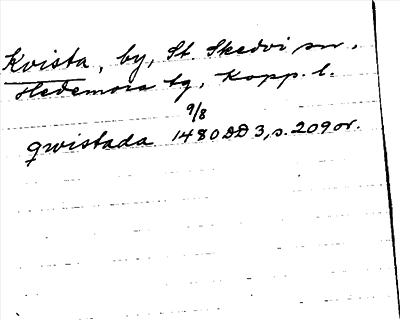 Kvista, by, St. Skedvi sn,
Hedemora tg, Kopp. l.
9/8
qwistada 1480 DD 3, s. 209 or.